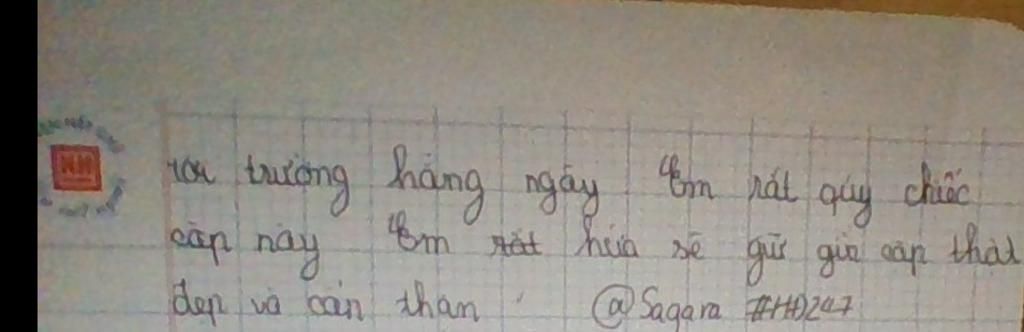 tới trường hàng ngày Em rất quý chiếc
cặp này Em rất hứa sẽ giữ gìn cặp thật
đẹp và cẩn thận @Sagara #HD247